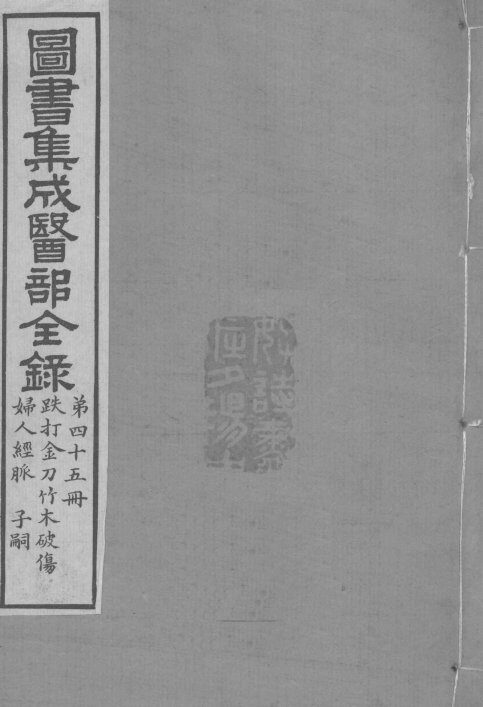 圖書集成醫部全錄
弟四十五冊
跌打金刀竹木破傷
婦人經脈 子嗣